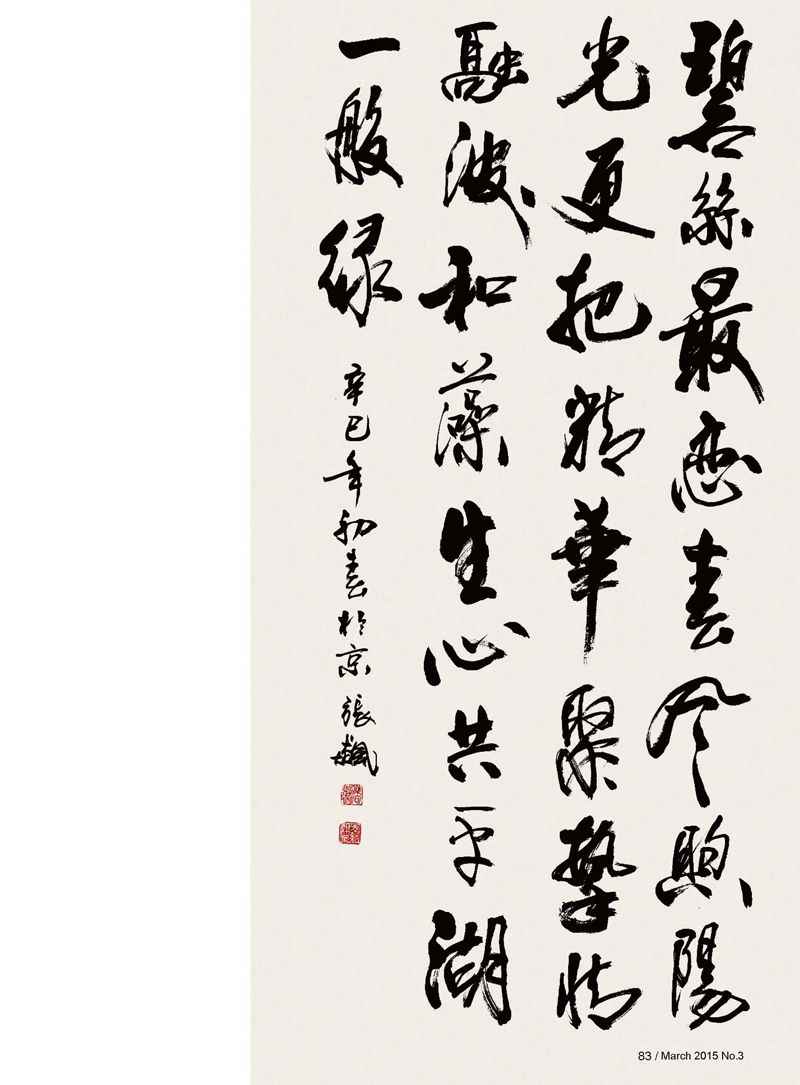 碧絲最恋春风煦陽
光更把精華聚摯情
融波和藻生心共平湖
一般绿
辛巳年初春於京 張飚
83 / March 2015 No.3